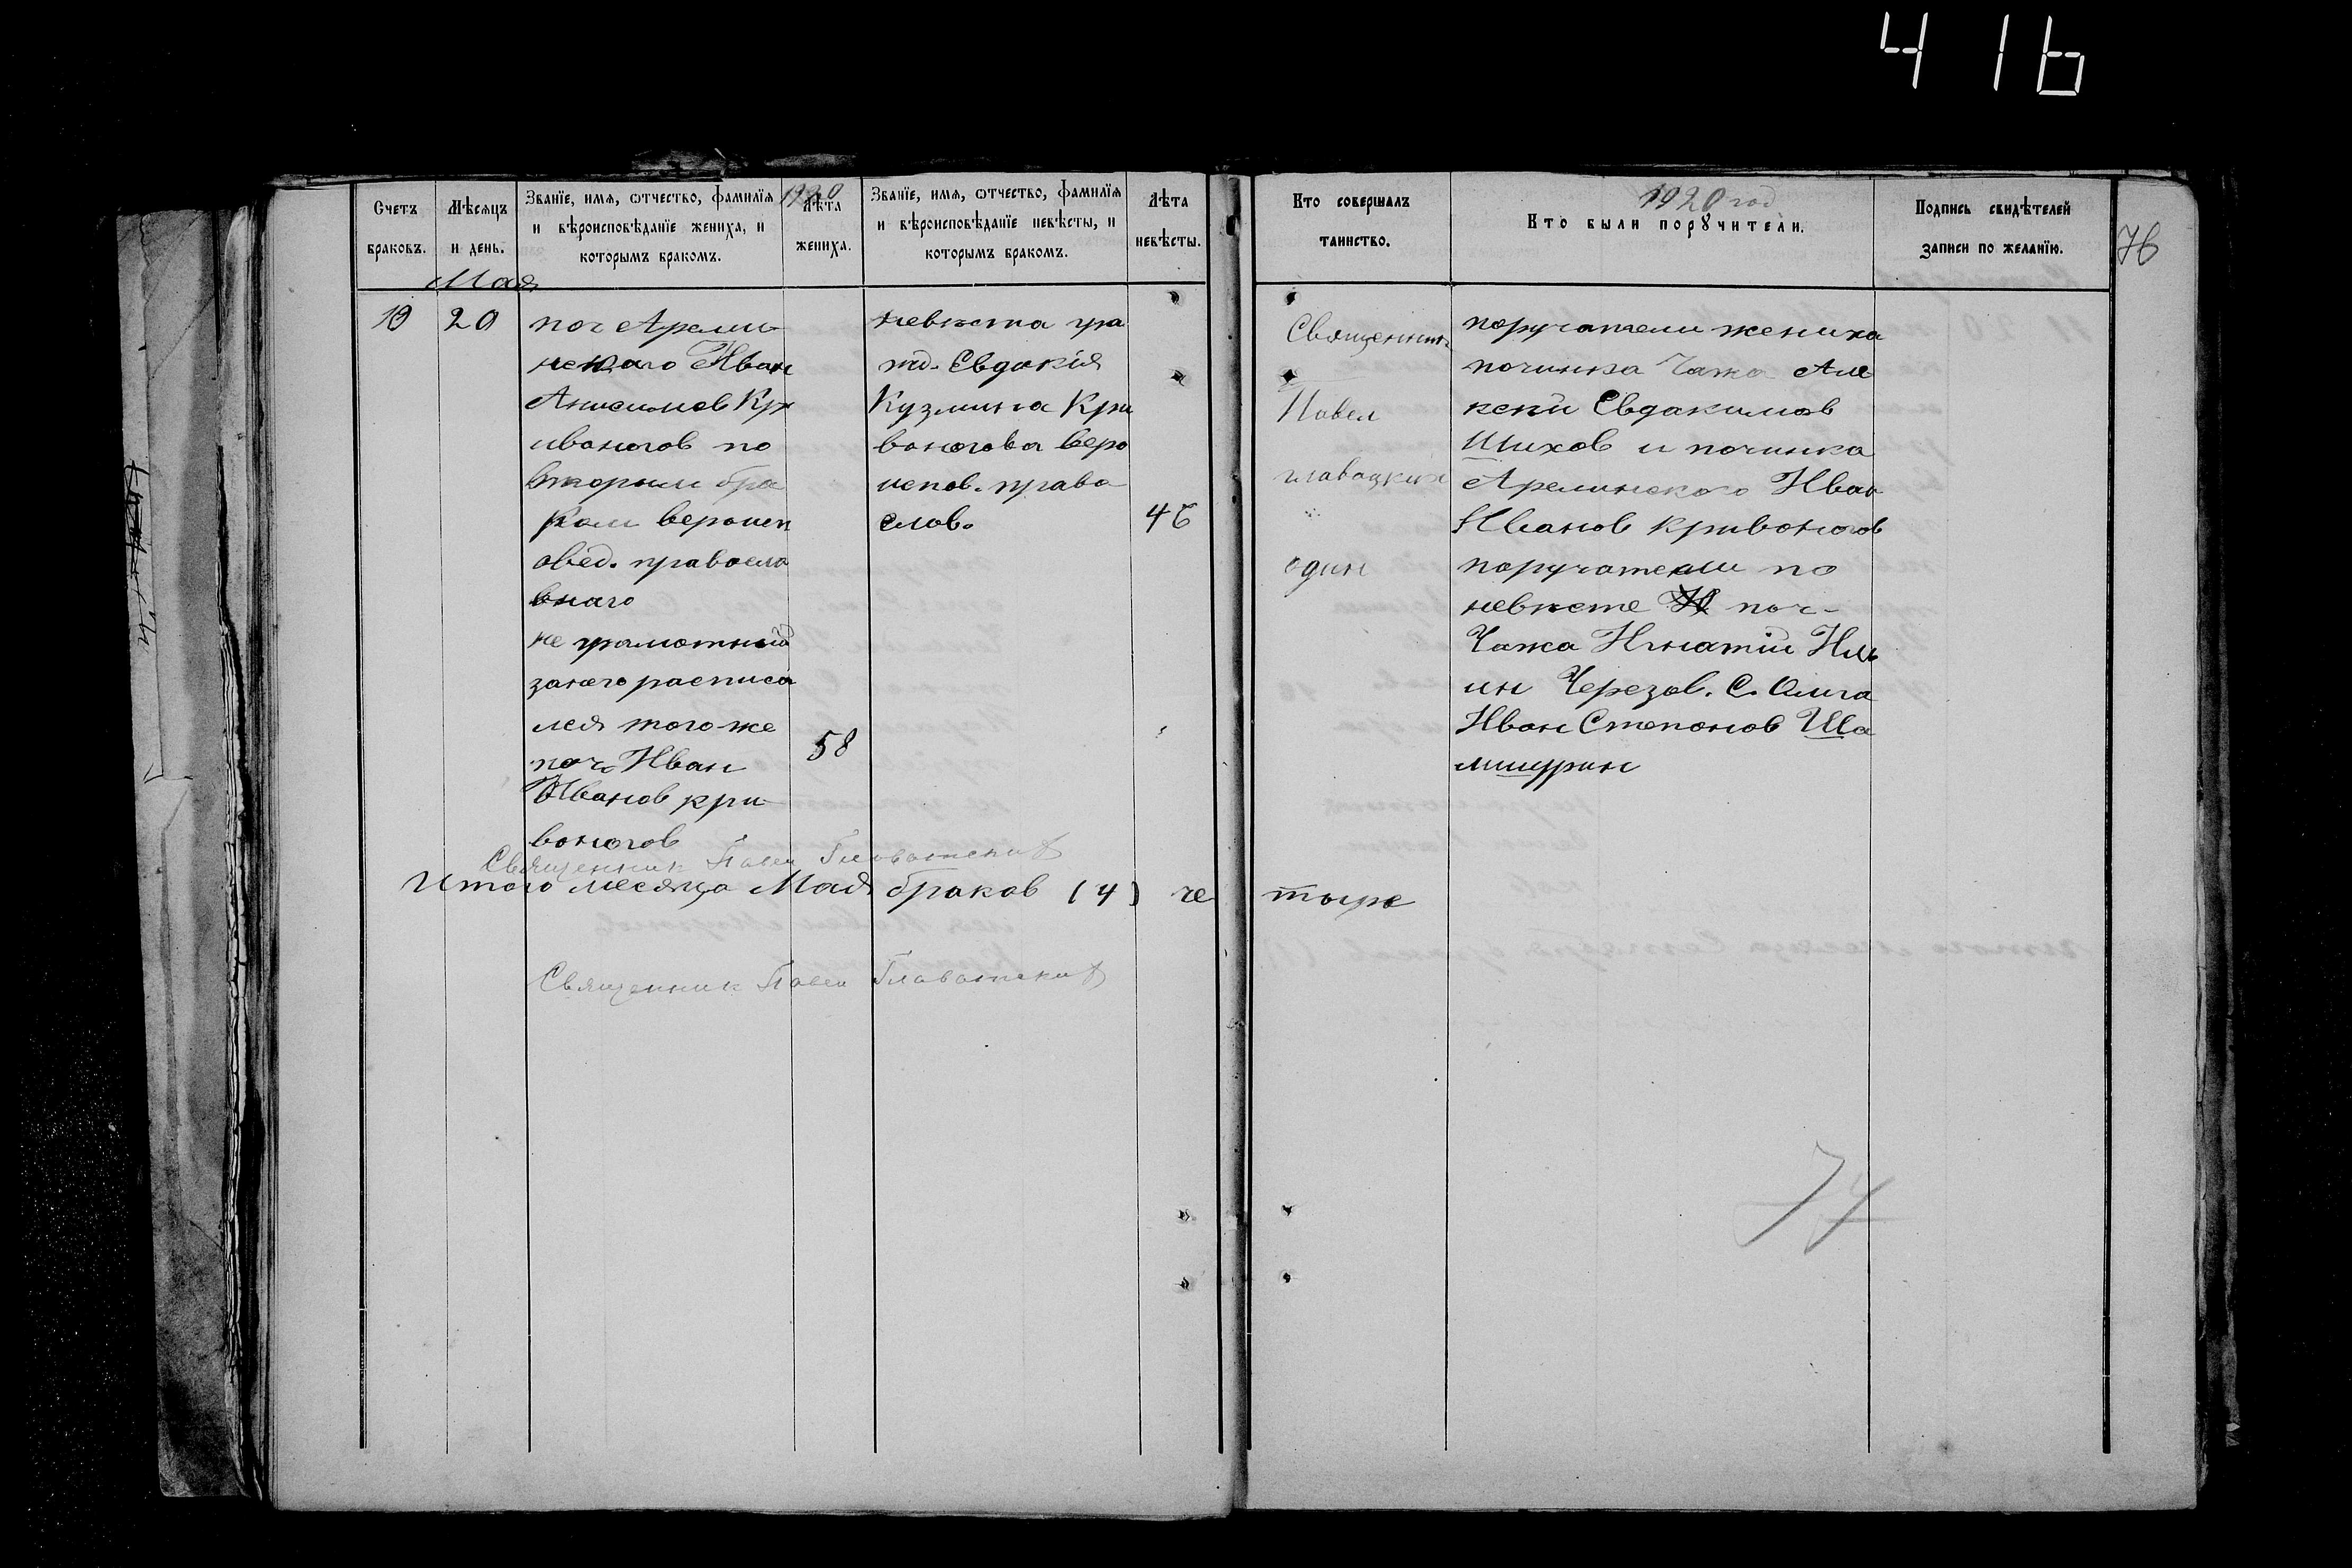 416
Счетъ браковъ.
Мѣсяцъ и день.
Званїе, имя, ѡтчество, фамилїя и вѣроисповѣданїе жениха, и которымъ бракомъ.
1920
Лѣта жениха.
Званїе, имя, ѡтчество, фамилїя и вѣроисповѣданїе невѣсты, и которымъ бракомъ.
Лѣта невѣсты.
Кто совершалъ таинство.
1920 год
Кто были порꙋчители.
Подпись свидѣтелей записи по желанїю.
Мая
20
поч Аремин
скаго Иван
Анисимов Кр
ивоногов по
вторым бра
ком вероисп
овед. правосла
внаго
не грамотный
занего расписа
лся того же
поч. Иван
Иванов кри
воногов
58
невеста гра
жд. Евдокія
Кузмина Кри
воногова веро
испов. право
слов.
Священник
Павел
главацкий
один
поручатели жениха
починка Чажа Але
ксей Евдакимов
Шихов и починка
Ареминского Иван
Иванов кривоногов
поручатели по
невесте поч-
Чажа Игнатій Иль
ин Черезов. С. Олига
Иван Степанов Ша
мшурин
Священник Павел Главатский
Итого месяца Мая браков (4) че тыре
Священник Павел Главатский